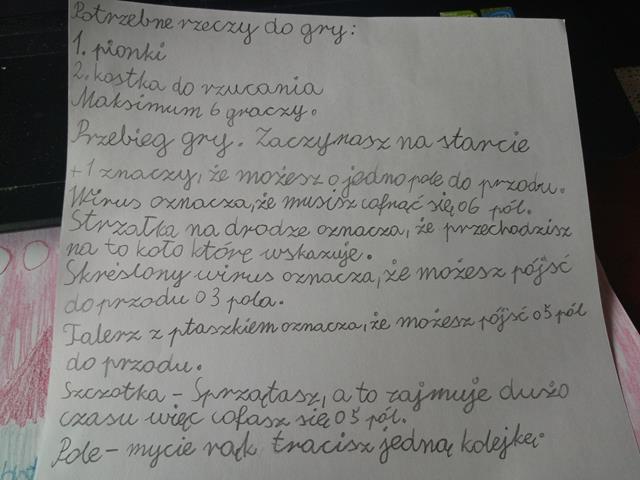 Potrzebne rzeczy do gry:
1. pionki
2. kostka do rzucania
Maksimum 6 graczy.
Przebieg gry. Zaczynasz na starcie
+1 znaczy, że możesz o jedno pole do przodu.
Wirus oznacza, że musisz cofnąć się o 6 pól.
Strzałka na drodze oznacza, że przechodzisz
na to koło którę wskazuje.
Skreślony wirus oznacza, że możesz pójść
do przodu o 3 pola.
Talerz z ptaszkiem oznacza, że możesz pójść o 5 pól
do przodu.
Szczotka - Sprzątasz, a to zajmuje dużo
czasu więc cofasz się o 5 pól.
Pole - mycie rąk tracisz jedną kolejkę.